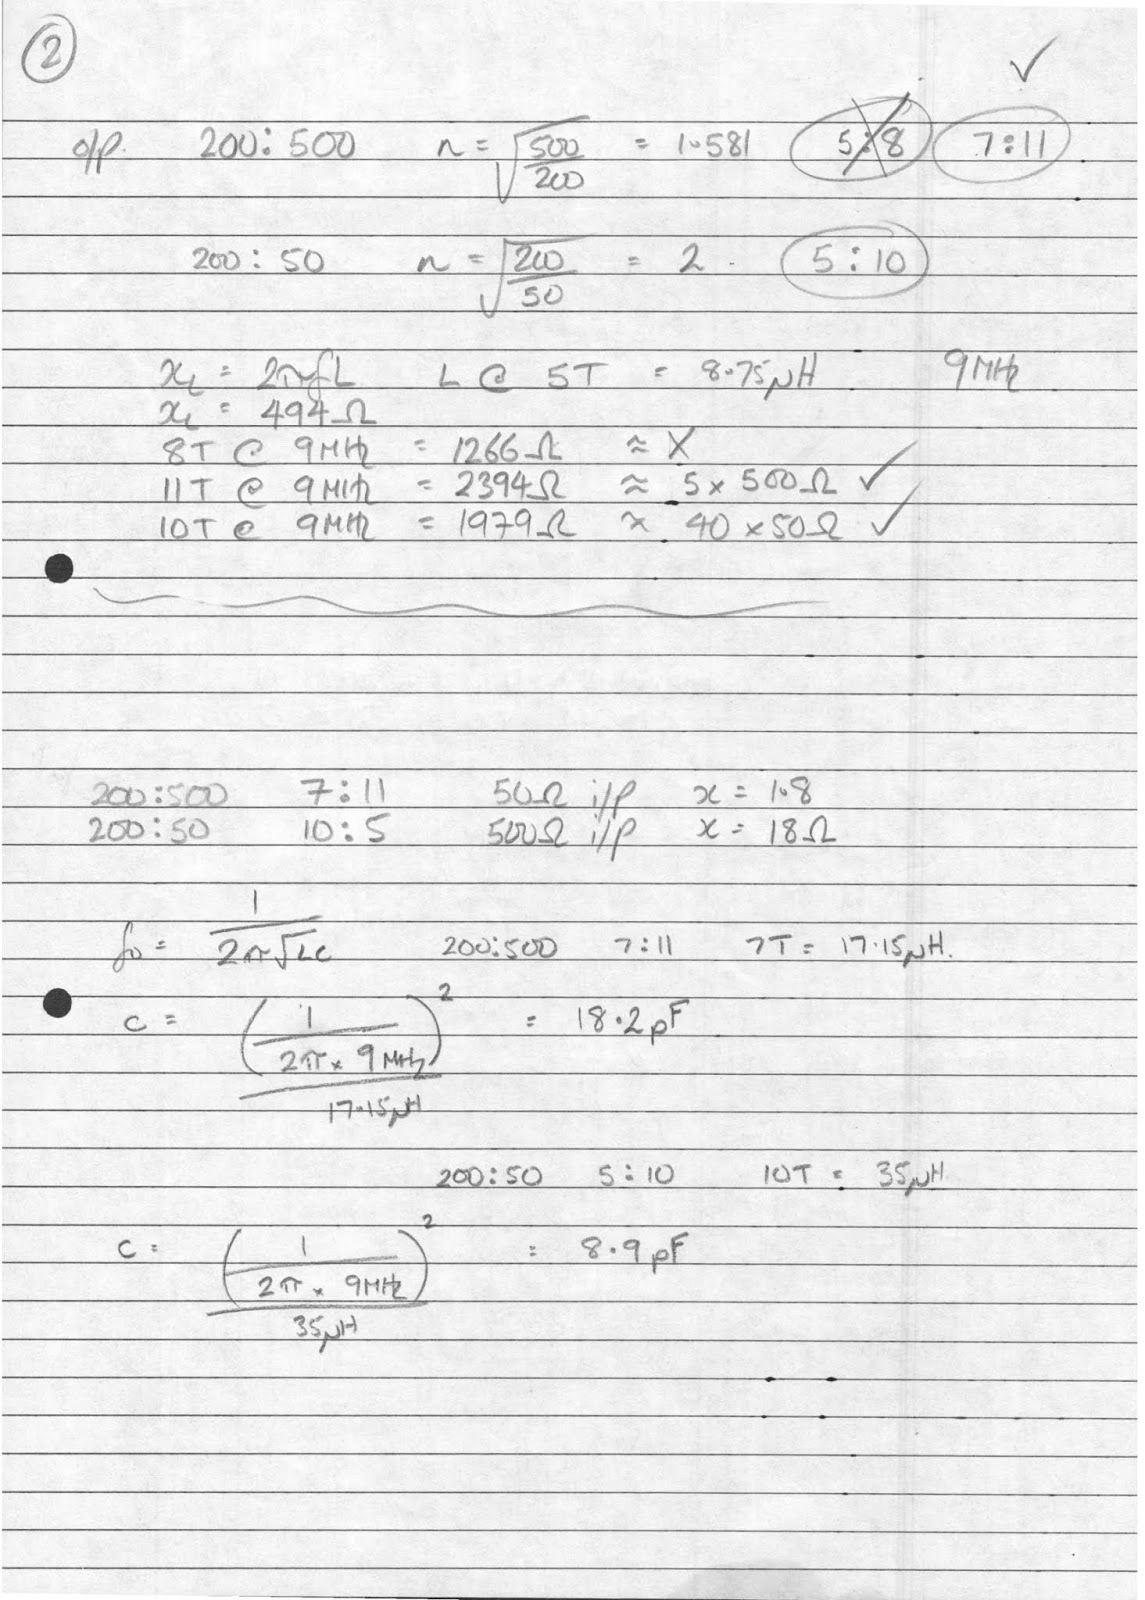 2
✓
o/p. 200:500 n = √(500/200) = 1.581 5:8 7:11
200:50 n = √(200/50) = 2 . 5:10
xL = 2πfL L @ 5T = 8.75μH 9MHz
xL = 494Ω
8T @ 9MHz = 1266Ω ≈ X
11T @ 9MHz = 2394Ω ≈ 5 x 500Ω ✓
10T @ 9MHz = 1979Ω ≈ 40 x 50Ω ✓
200:500 7:11 50Ω i/p x = 1.8
200:50 10:5 500Ω i/p x = 18Ω
fo = 1/(2π√LC) 200:500 7:11 7T = 17.15μH.
C = (1/(2π x 9MHz))²/17.15μH = 18.2pF
200:50 5:10 10T = 35μH
C = (1/(2π x 9MHz))²/35μH = 8.9pF